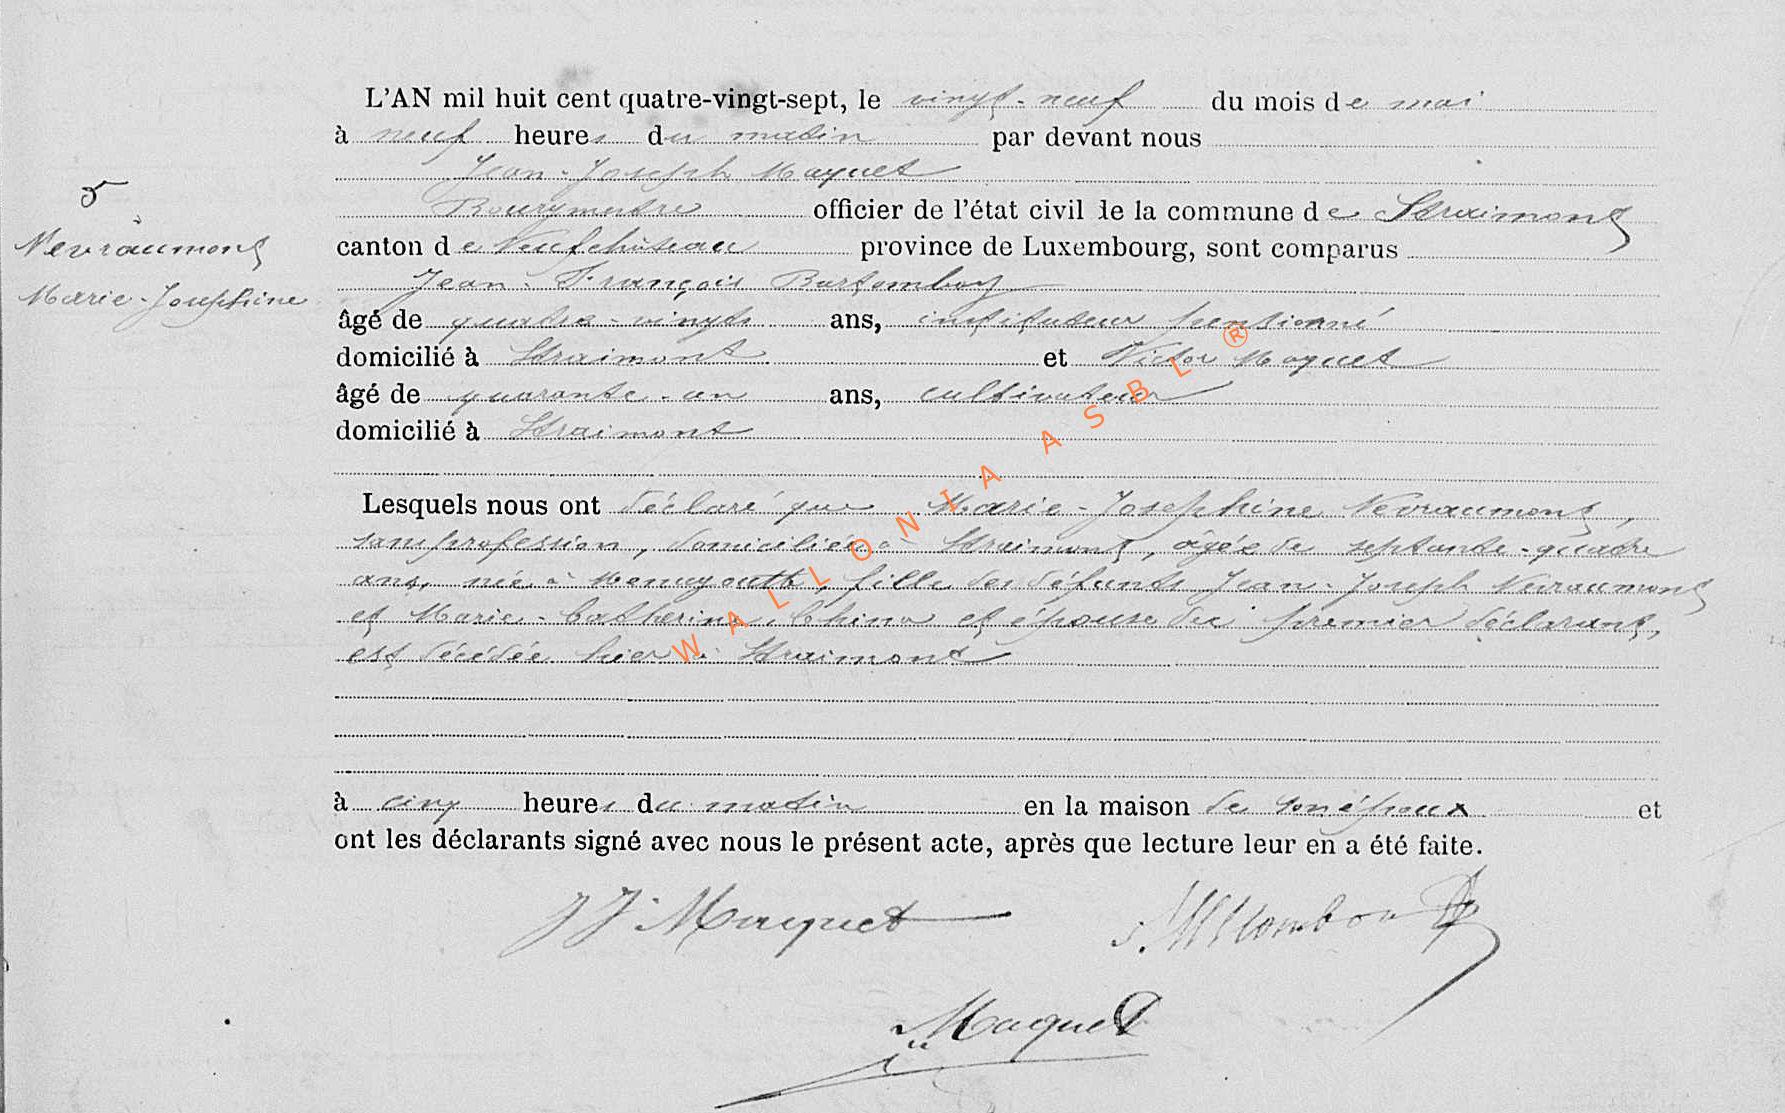 L'AN mil huit cent quatre-vingt-sept, le vingt-neuf du mois de mai
à neuf heures du matin par devant nous
Jean-Joseph Maquet
5
Bourgmestre officier de l'état civil de la commune de Straimont
Nevraumont
canton de Neufchâteau province de Luxembourg, sont comparus
Marie-Josephine
Jean-François
âgé de quatre-vingts ans, instituteur pensionné
domicilié à Straimont et Victor Maquet
âgé de quarante-un ans, cultivateur
domicilié à Straimont
Lesquels nous ont déclaré que Marie-Josephine Nevraumont,
sans profession, domiciliée à Straimont, âgée de septante-quatre
ans, née à fille des défunts Jean-Joseph Nevraumont
et Marie-Catherine et épouse du premier déclarant,
est décédée hier à Straimont
à cinq heures du matin en la maison de son époux et
ont les déclarants signé avec nous le présent acte, après que lecture leur en a été faite.
JJ. Maquet
Maquet
WALLONIA ASBL ®